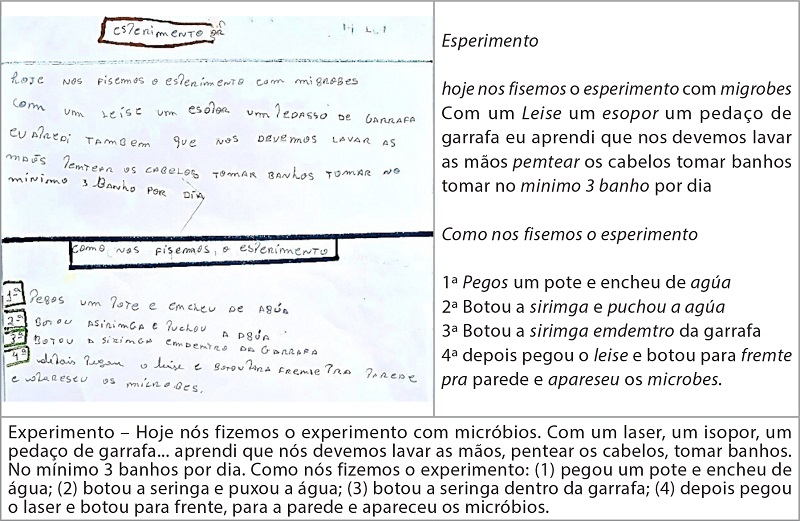 esperimento
hoje nos fisemos o esperimento com migrobes
com um leise um esopor um pedasso de garrafa
eu apredi tambem que nos devemos lavar as
maõs pemtear os cabelos tomar banhos tomar no
minimo 3 banho por dia
como nos fisemos, o esperimento
1ª Pegos um pote e emcheu de agúa
2ª Botou a sirimga e puchou a agúa
3ª Botou a sirimga emdemtro da garrafa
4ª depais pegou o leise e botou para fremte pra parede
e apareseu os microbes.
Esperimento
hoje nos fisemos o esperimento com migrobes
Com um Leise um esopor um pedaço de
garrafa eu aprendi que nos devemos lavar
as mãos pemtear os cabelos tomar banhos
tomar no minimo 3 banho por dia
Como nos fisemos o esperimento
1ª Pegos um pote e encheu de agúa
2ª Botou a sirimga e puchou a agúa
3ª Botou a sirimga emdemtro da garrafa
4ª depois pegou o leise e botou para fremte
pra parede e apareseu os microbes.
Experimento – Hoje nós fizemos o experimento com micróbios. Com um laser, um isopor, um
pedaço de garrafa... aprendi que nós devemos lavar as mãos, pentear os cabelos, tomar banhos.
No mínimo 3 banhos por dia. Como nós fizemos o experimento: (1) pegou um pote e encheu de
água; (2) botou a seringa e puxou a água; (3) botou a seringa dentro da garrafa; (4) depois pegou
o laser e botou para frente, para a parede e apareceu os micróbios.